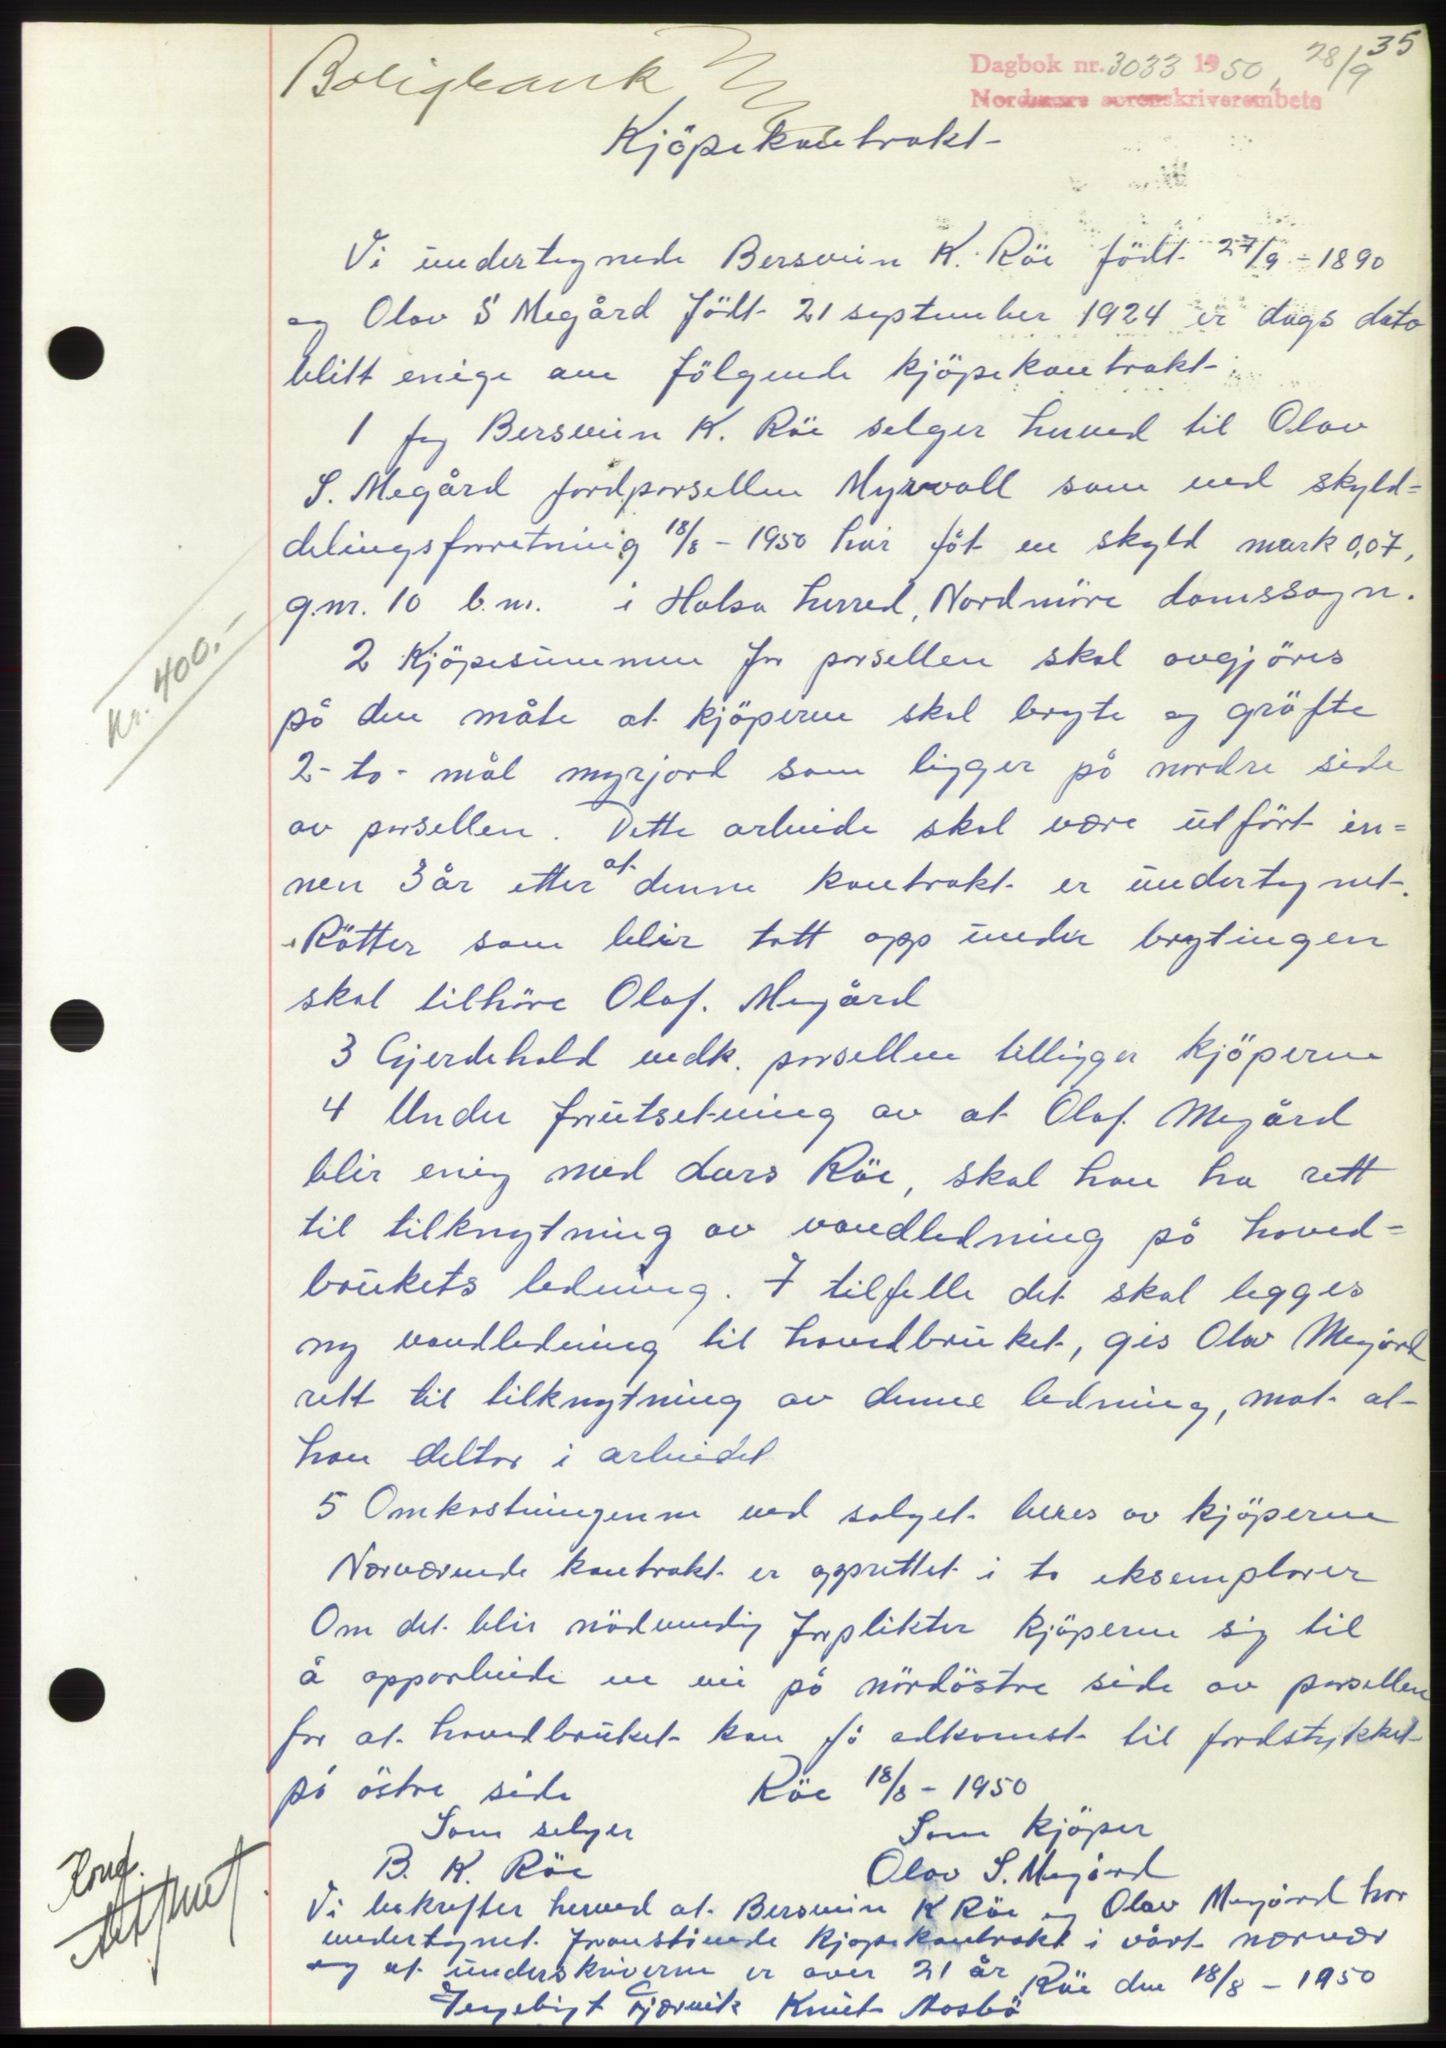 35
Boligbank
Dagbok nr. 3033 1950, 28/9
Nordmøre sorenskriverembete
Kjöpekontrakt
Vi undertegnede Bersvein K. Röe födt 27/9 - 1890
og Olav S Megård födt 21 september 1924 er dags dato
blitt enige om fölgende kjöpekontrakt:
1 Jeg Bersvein K. Röe selger herved til Olav
S. Megård jordparsellen Myrvoll som ved skyld=
delingsforretning 18/8 - 1950 har fåt en skyld mark 0,07,
g.nr. 10 b.nr. i Halsa herred, Nordmöre domssogn.
2 Kjöpesummen for parsellen skal avgjöres
på den måte at kjöperen skal bryte og gröfte
2 - to - mål myrjord som ligger på nordre side
av parsellen. Dette arbeide skal være utfört in=
nen 3 år etter at denne kontrakt er undertegnet.
Rötter som blir tatt opp under brytingen
skal tilhöre Olaf. Megård
3 Gjerdehold vedk. parsellen tilligger kjöperen
4 Under forutsetning av at Olaf. Megård
blir enig med Lars Röe, skal han ha rett
til tilknytning av vandledning på hoved=
brukets ledning. I tilfelle det skal legges
ny vandledning til hovedbruket, gis Olav Megård
rett til tilknytning av denne ledning, mot at
han deltar i arbeidet
5 Omkostningene ved salget beres av kjöperen
Nærværende kontrakt er opprettet i to eksemplarer
Om det blir nödvendig forplikter kjöperen sig til
å opparbeide en vei på nördöstre side av parsellen
for at hovedbruket kan få adkomst til jordstykket
på östre side
Röe 18/8 - 1950
Som selger
Som kjöper
B. K. Röe
Olav S. Megård
Vi bekrefter herved at Bersvein K Röe og Olav Megård har
undertegnet foranstående kjöpekontrakt i vårt nærvær
og at underskriverne er over 21 år
Röe den 18/8 - 1950
Ingebrigt Gjærvik Knut Mosbö
Kr. 400.-
Konf.